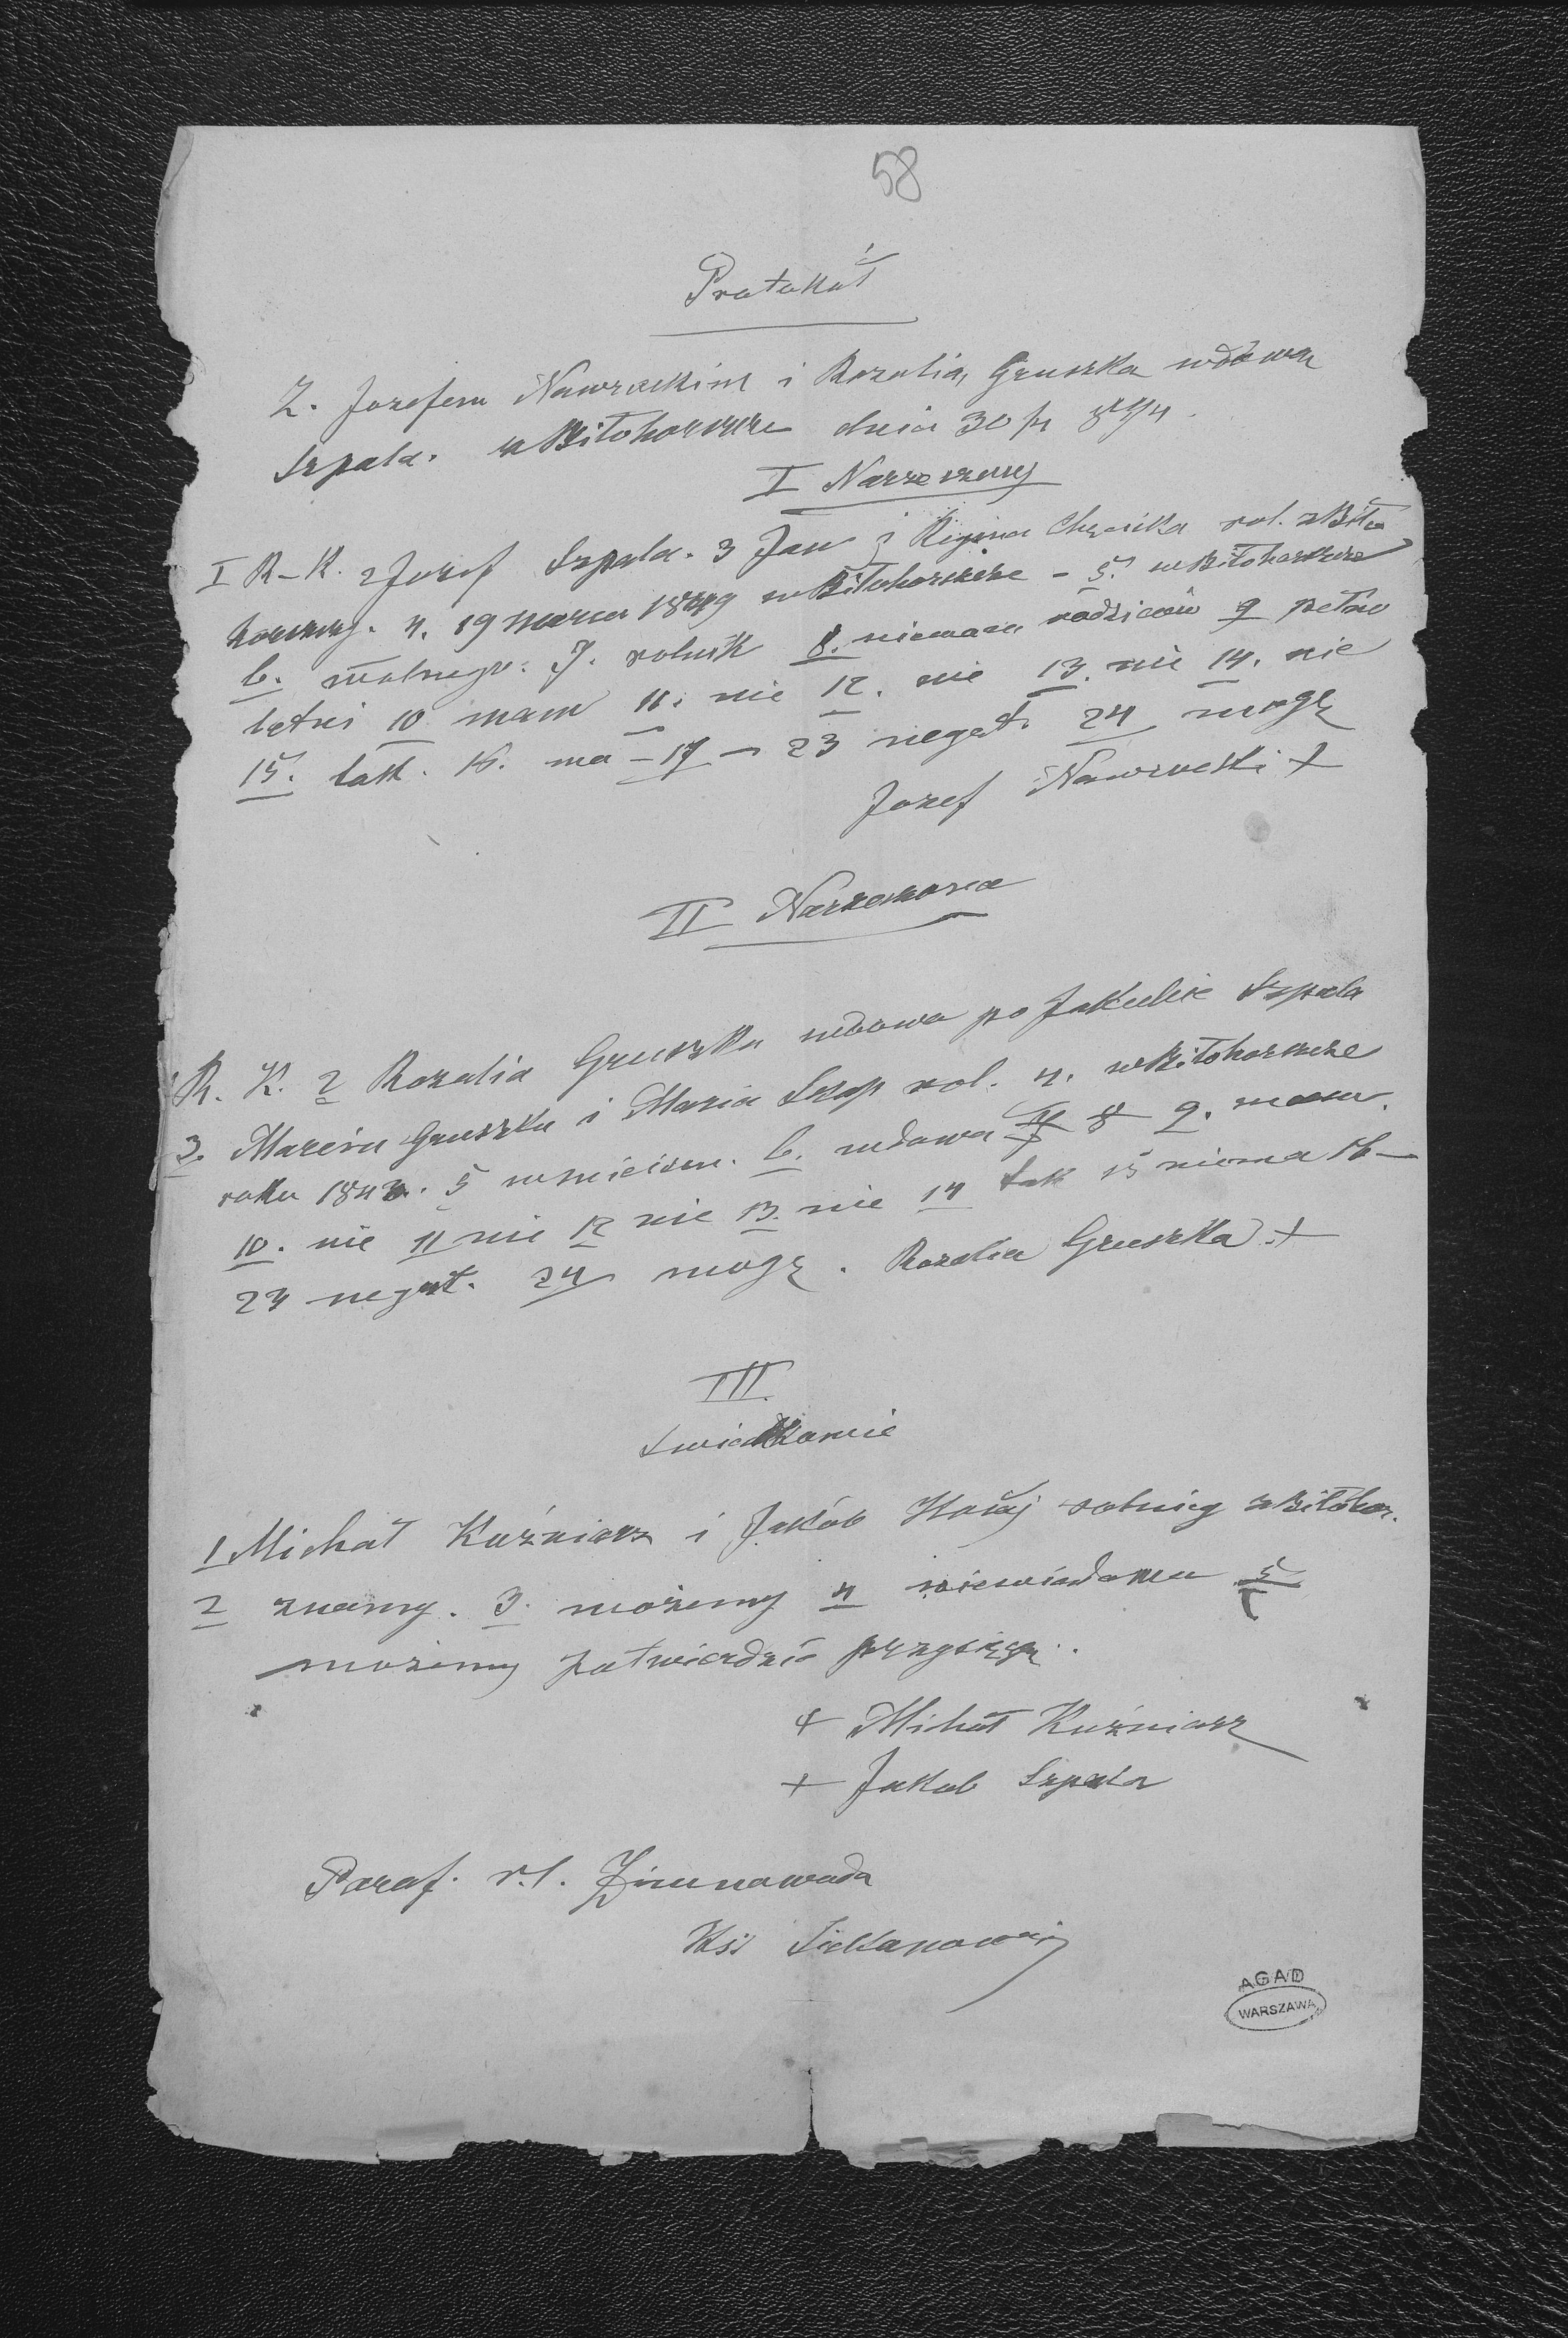 58
Protokół
Z. Jozefem Nawrockim i Rozalią Gruszka wdową
Szpala. w Biłohorszcze dnia 30/4
I Narzeczony
I R-K. 2 Jozef Szpala. 3 Jan i Regina rol. z Biło
horszczy. 4. 19 marca 1849 w Biłohorszcze - 5. w Biłohorszcze
6. wolnego. 7. rolnik 8. niemam rodziców 9 pełno
letni 10 mam 11. nie 12. nie 13. nie 14. nie
15. tak. 16. ma - 17 - 23 negat. 24 mogę
Jozef Nawrocki +
II Narzeczona
R. K. 2 Rozalia Gruszka wdowa po Jakubie Szpala
3. Marcin Gruszka i Maria Skop rol. 4. w Biłohorszcze
roku 5 w miejscu. 6. wdowa 8 9. mam.
10. nie 11 nie 12 nie 13. nie 14 tak 15 niema 16 -
23 negat. 24 mogę. Rozalia Gruszka +
III.
Swiadkowie
1 Michał Kuźniarz i Jakób rolnicy z Biłohor.
2 znamy. 3. możemy 4 niewiadomo 5
możemy potwierdzić przysięgą.
+ Michał Kuźniarz
+ Jakob Szpala
Paraf. r.l. Zimnawoda
Ks.
AGAD
WARSZAWA